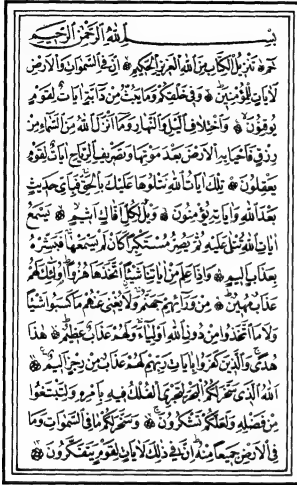 بسم الله الرحمن الرحيم
حم تنزيل الكتاب من الله العزيز الحكيم ان فى السموات والارض
لايات للمؤمنين وفى خلقكم وما يبث من دابة ايات لقوم
يوقنون واختلاف اليل والنهار وما انزل الله من السماء من
رزق فاحيا به الارض بعد موتها وتصريف الرياح ايات لقوم
يعقلون تلك ايات الله نتلوها عليك بالحق فباى حديث
بعد الله واياته يؤمنون ويل لكل افاك اثيم يسمع
ايات الله تتلى عليه ثم يصر مستكبرا كان لم يسمعها فبشره
بعذاب اليم واذا علم من اياتنا شيئا اتخذها هزوا اولئك لهم
عذاب مهين من ورائهم جهنم ولا يغنى عنهم ما كسبوا شيئا
ولا ما اتخذوا من دون الله اولياء ولهم عذاب عظيم هذا
هدى والذين كفروا بايات ربهم لهم عذاب من رجز اليم
الله الذى سخر لكم البحر لتجرى الفلك فيه بامره ولتبتغوا
من فضله ولعلكم تشكرون وسخر لكم ما فى السموات وما
فى الارض جميعا منه ان فى ذلك لايات لقوم يتفكرون